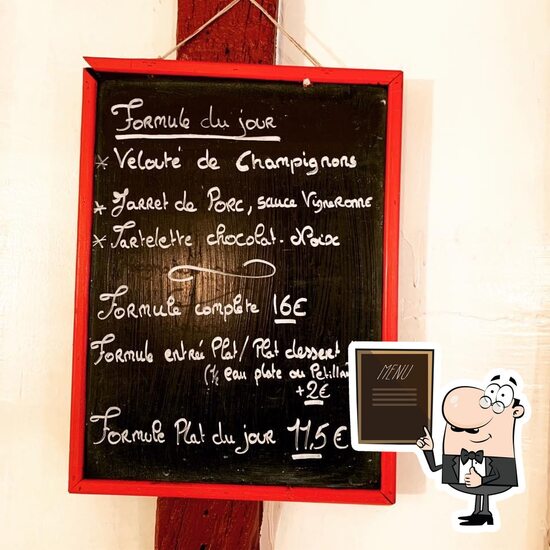 Formule du jour
* Velouté de Champignons
* Jarret de Porc, sauce Vigneronne
* Tartelette chocolat. Noix
Formule complete 16€
Formule entrée Plat/Plat dessert
(½ eau plate ou Petillan
+2€
Formule Plat du jour 11,5€
MENU